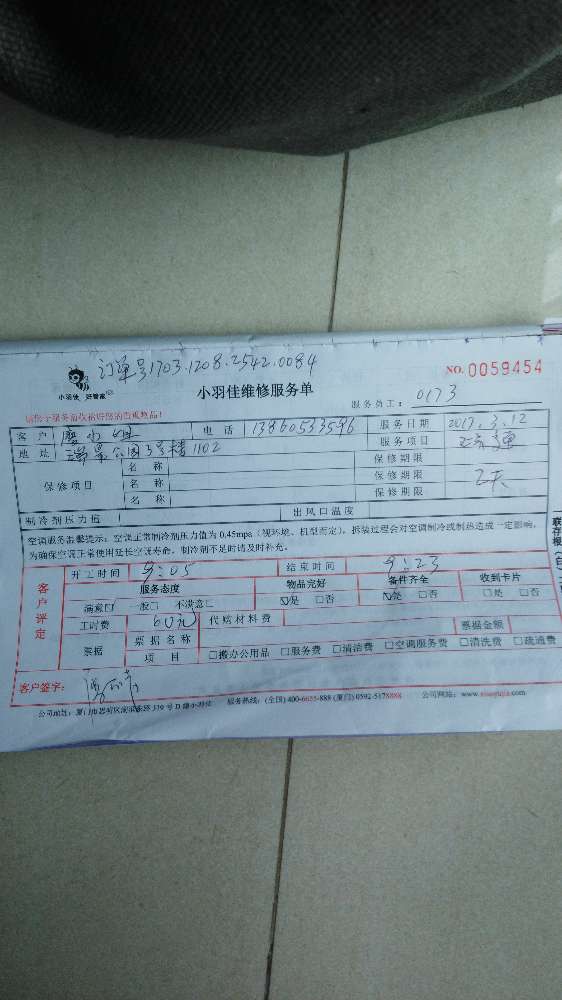 订单号1703.1208.2542.0084
小羽佳 好管家
NO. 0059454
小羽佳维修服务单
服务员工: 0173
请您于服务前收拾好您的贵重物品!
客户 廖小姐 电话 13860533596 服务日期 2017.3.12
地址 瑞景公园3号楼1102 服务项目
保修项目
名称 保修期限
名称 保修期限 2天
名称 保修期限
制冷剂压力值 出风口温度
空调服务温馨提示: 空调正常制冷剂压力值为0.45mpa (视环境、机型而定), 拆装过程会对空调制冷或制热造成一定影响,
为确保空调正常使用延长空调寿命, 制冷剂不足时请及时补充。
客户评定
开工时间 9:05 结束时间 9:23
服务态度 物品完好 备件齐全 收到卡片
满意□ 一般□ 不满意□ ☑是 □否 ☑是 □否 □是 □否
工时费 60元 代购材料费
票据 票据名称 票据金额
项目 □搬办公用品 □服务费 □清洁费 □空调服务费 □清洗费 □疏通费
客户签字:
服务热线: (全国) 400-6655-888 (厦门) 0592-5178888
公司网站: www.xiaoyujia.com